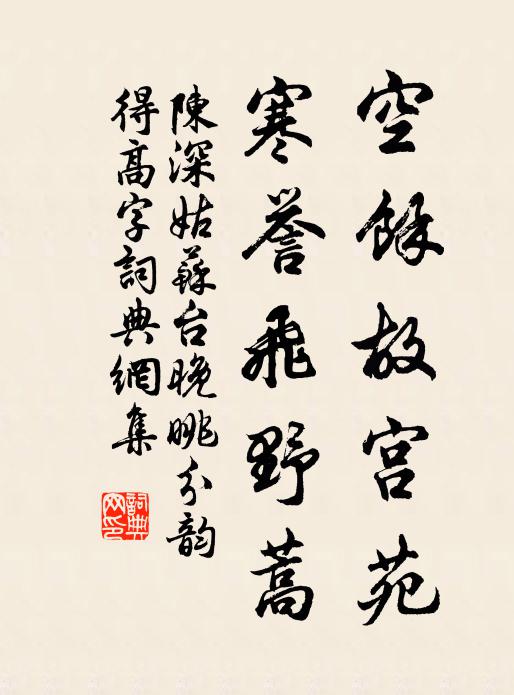 空餘故宮苑
寒誉飛野蒿
陳深姑蘇台晚眺分韵
得高字詞典網集
詞典网印